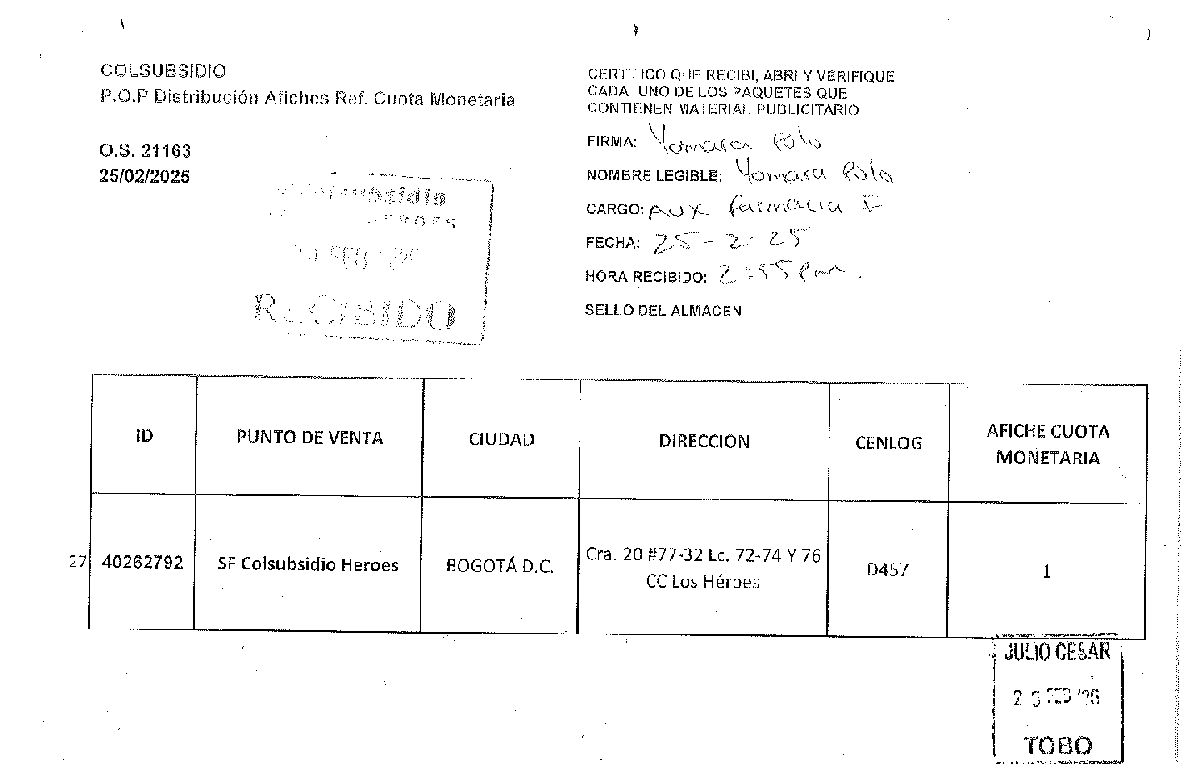 COLSUBSIDIO
P.O.P Distribución Afiches Ref. Cuota Monetaria
O.S. 21163
25/02/2025
Colsubsidio
HEROES
FEB
RECIBIDO
CERTIFICO QUE RECIBI, ABRI Y VERIFIQUE
CADA UNO DE LOS PAQUETES QUE
CONTIENEN MATERIAL PUBLICITARIO
FIRMA: Yomara Polo
NOMBRE LEGIBLE: Yomara Polo
CARGO: Aux farmacia I
FECHA: 25-2-25
HORA RECIBIDO: 2:55 Pm.
SELLO DEL ALMACEN
ID PUNTO DE VENTA CIUDAD DIRECCION CENLOG AFICHE CUOTA MONETARIA
27 40262792 SF Colsubsidio Heroes BOGOTÁ D.C. Cra. 20 #77-32 Lc. 72-74 Y 76 CC Los Héroes D457 1
JULIO CESAR
25 FEB
TOBO